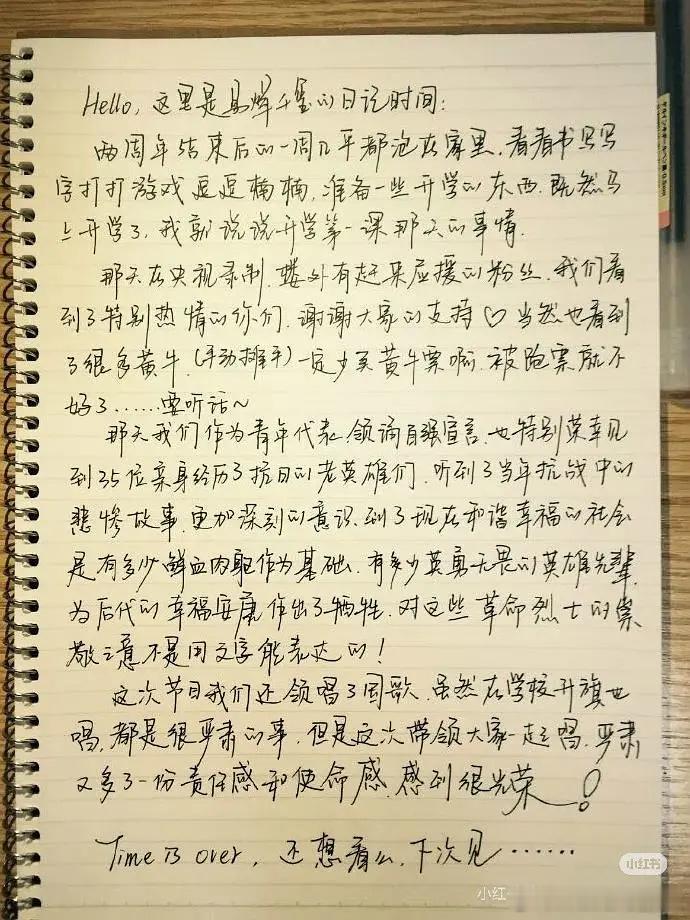 Hello, 这里是易烊千玺的日记时间:
两周年结束后的一周几乎都泡在家里.看看书写写
字打打游戏逗逗楠楠,准备一些开学的东西.既然马
上开学了.我就说说开学第一课那天的事情.
那天在央视录制.楼外有赶来应援的粉丝.我们看
到了特别热情的你们.谢谢大家的支持♡ 当然也看到
了很多黄牛.(手动摊手)一定少买黄牛票啊.被跑票就不
好了……要听话~
那天我们作为青年代表.领诵自强宣言.也特别荣幸见
到35位亲身经历了抗日的老英雄们.听到了当年抗战中的
悲惨故事.更加深刻的意识到了现在和谐幸福的社会
是有多少鲜血肉躯作为基础.有多少英勇无畏的英雄先辈
为后代的幸福安康作出了牺牲.对这些革命烈士的崇
敬之意不是用文字能表达的!
这次节目我们还领唱了国歌.虽然在学校升旗也
唱,都是很严肃的事.但是这次带领大家一起唱.严肃
又多了一份责任感和使命感.感到很光荣!
Time is over, 还想看么.下次见……
小红书
小红